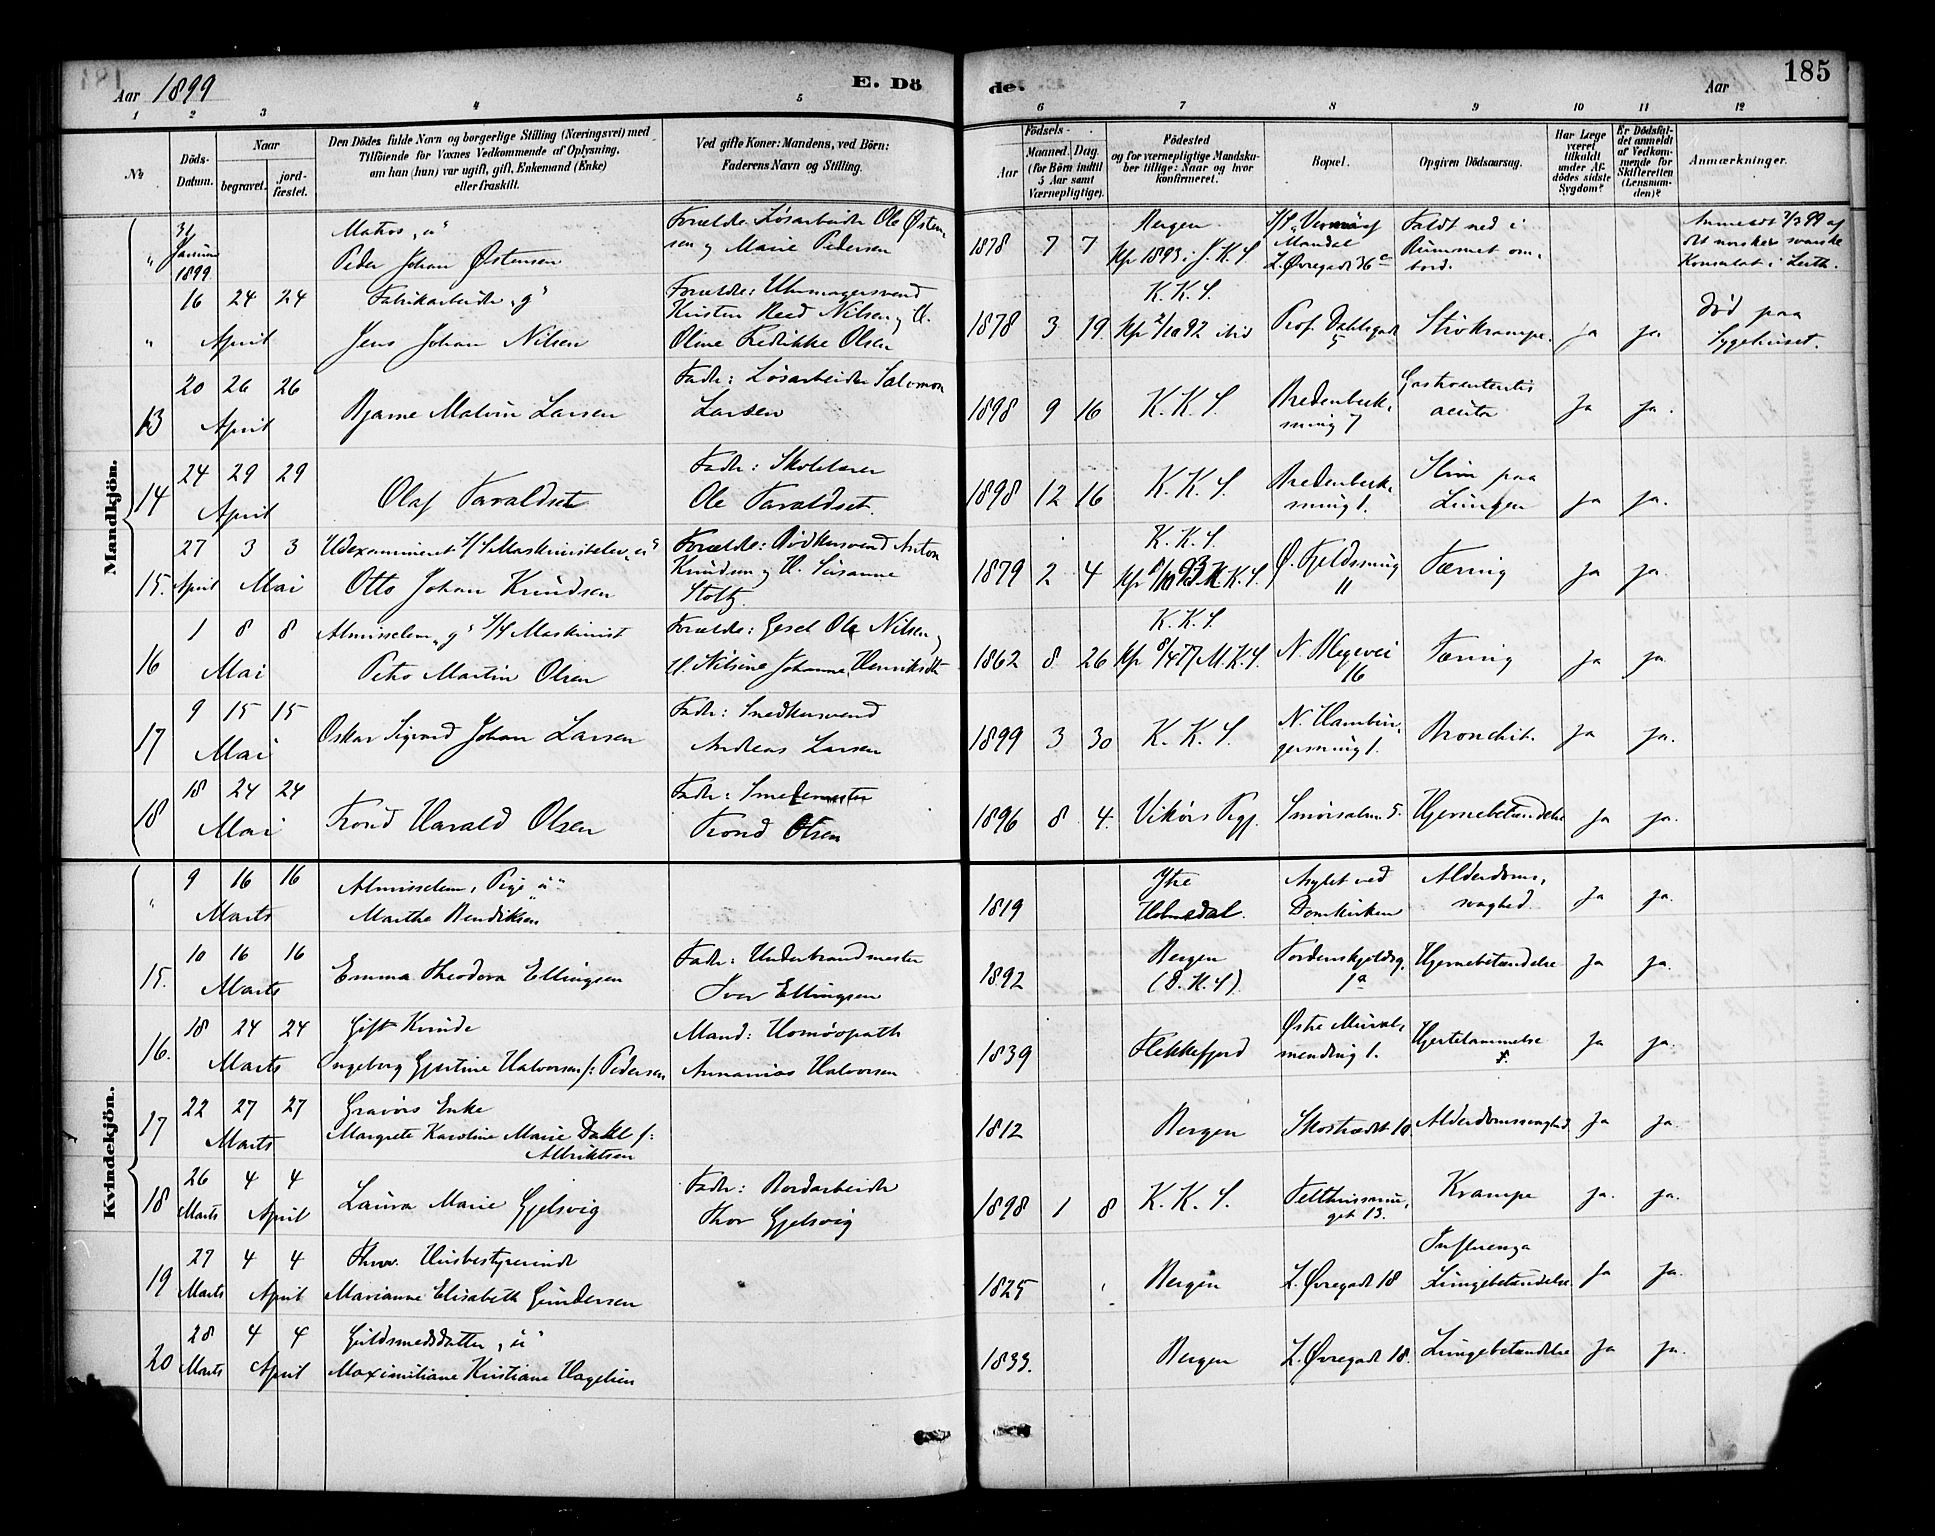 Aar 1899
E. Dö
de.
Aar
185
1 2 3 4 5 6 7 8 9 10 11 12
No
Döds-Datum.
Naar
begravet.
jordfæstet.
Den Dödes fulde Navn og borgerlige Stilling (Næringsvei) med
Tilföiende for Voxnes Vedkommende af Oplysning,
om han (hun) var ugift, gift, Enkemand (Enke)
eller fraskilt.
Ved gifte Koner: Mandens, ved Börn:
Faderens Navn og Stilling.
Födsels-
Aar
Maaned. Dag.
(for Börn indtil
5 Aar samt
Værnepligtige).
Födested
og for værnepligtige Mandska-
ber tillige: Naar og hvor
konfirmeret.
Bopæl.
Opgiven Dödsaarsag.
Har Læge
været
tilkaldt
under Af-
dödes sidste
Sygdom?
Er Dödsfal-
det anmeldt
af Vedkom-
mende for
Skifteretten
(Lensman-
den)?
Anmærkninger.
Mandkjön.
" 31 Januar 1899
Matros "u"
Peder Johan Østensen
Forældre: Løsarbeider Ole Østen-
sen og Marie Pedersen
1878 7 7
Bergen
Kf 1893 i J. K. S
Mandal
L. Øvregade 36 c
Faldt ned i
Rummet om-
bord.
Anmeldt 7/3 99 af
det norske svenske
Konsulat i Leith.
" 16 24 24
April
Fabrikarbeider "g"
Jens Johan Nilsen
Forældre: Uhrmagersvend
Kirsten Reed Nilsen og H.
Oline Fredrikke Olsen
1878 3 19
K. K. S.
Kf 2/10 92 ibid
Prof. Dahlsgade
5
Stivkrampe.
ja ja.
Død paa
Sygehuset.
13 20 26 26
April
Bjarne Malvin Larsen
Fader: Løsarbeider Salomon
Larsen
1898 9 16
K. K. S.
Bredenbeck-
smug 7
Gastroenteritis
acuta
ja ja.
14 24 29 29
April
Olaf Taraldset
Fader: Skolelærer
Ole Taraldset.
1898 12 16
K. K. S.
Bredenbeck-
smug 1.
Slim paa
Lungen
ja ja.
15. 27 3 3
April Mai
Udexamineret S/S Maskinistelev "u"
Otto Johan Knudsen
Forældre: Bødkersvend Anton
Knudsen og H. Susanne
Stoltz.
1879 2 4
K. K. S.
Kf 8/10 93 K. K. S.
Ø. Fjeldsmug
11
Tæring
ja ja.
16 1 8 8
Mai
Almisselem "g" S/S Maskinist
Peter Martin Olsen
Forældre: Gesel Ole Nilsen og
H. Nilsine Johanne Henriksdtr
1862 8 26
K. K. S.
Kf 8/4 77 M. K. S.
N. Blegevei
16
Tæring
ja ja.
17 9 15 15
Mai
Oskar Sigvard Johan Larsen
Fader: Snedkersvend
Andreas Larsen
1899 3 30
K. K. S.
N. Hambur-
gersmug 1.
Bronchit.
ja ja.
18 18 24 24
Mai
Trond Harald Olsen
Fader: Smedemester
Trond Olsen
1896 8 4.
Vikörs Prgj.
Smørsalm. 5.
Hjernebetændelse
ja ja.
Kvindekjön.
" 9 16 16
Marts
Almisselem, Pige "u"
Marthe Bendiksen
1819
Ytre
Holmedal.
Asylet ved
Domkirken
Alderdoms-
svaghed.
ja ja.
15. 10 16 16
Marts
Emma Theodora Ellingsen
Fader: Underbrandmester
Iver Ellingsen
1892
Bergen
(D. K. S).
Tordenskjoldsg.
1a
Hjernebetændelse
ja ja.
16. 18 24 24
Marts
Gift Kvinde
Ingeborg Gjertine Halvorsen f: Pedersen
Mand: Homöopath
Annanias Halvorsen
1839
Flekkefjord
Østre Mural-
mending 1.
Hjertelammelse
ja ja.
17 22 27 27
Marts
Gravörs Enke
Margrete Karoline Marie Dahl f:
Albriktsen
1812
Bergen
Skostrædet 10
Alderdomssvaghed
ja ja.
18 26 4 4
Marts April
Laura Marie Gjelsvig
Fader: Bordarbeider
Thor Gjelsvig
1898 1 8
K. K. S.
Felthussmu-
get 13.
Krampe
ja. ja.
19 27 4 4
Marts April
Husbestyrerinde
Marianne Elisabeth Gundersen
1825
Bergen
L. Øvregade 18
Influenza
Lungebetændelse
ja ja.
20 28 4 4
Marts April
Guldsmedsdatter "u"
Maximiliane Kristiane Hagelien
1833.
Bergen
L. Øvregade 18.
Lungebetændelse
ja ja.